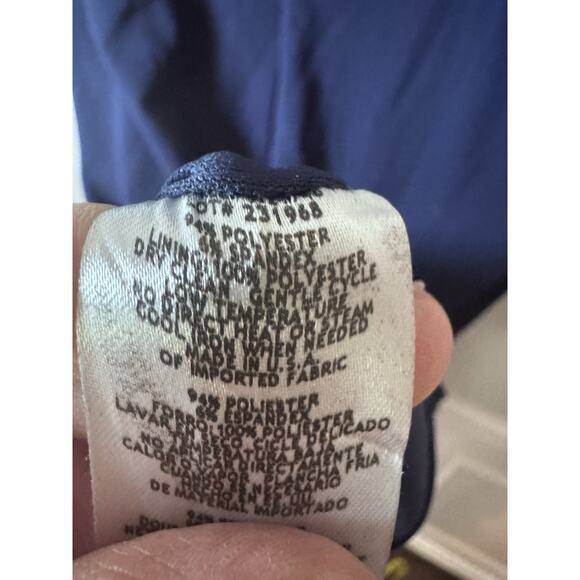 LOT# 231968
94% POLYESTER
6% SPANDEX
LINING: 100% POLYESTER
DRY CLEAN GENTLE CYCLE
NO LOW TEMPERATURE
DIRECT HEAT OR STEAM
COOL IRON WHEN NEEDED
MADE IN U.S.A.
OF IMPORTED FABRIC
94% POLIESTER
6% ESPANDEX
FORRO: 100% POLIESTER
LAVAR EN SECO CICLO DELICADO
NO TEMPERATURA BAJA
CALOR DIRECTAMENTE
PLANCHA FRIA
NECESARIO
HECHO EN EE.UU.
DE MATERIAL IMPORTADO
94%